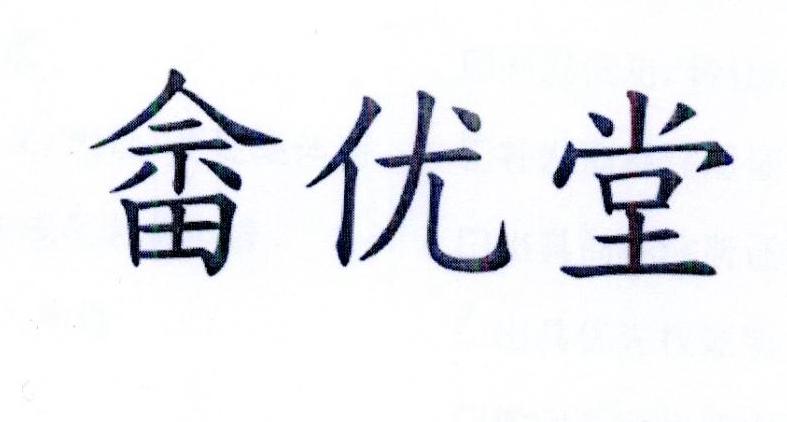 畲优堂